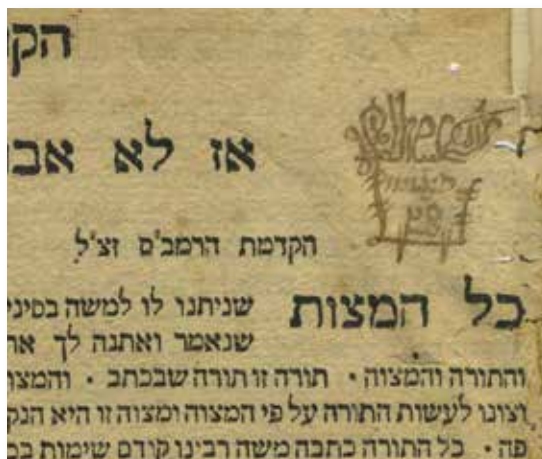 הק
אז לא אב
הקדמת הרמב"ם זצ"ל
כל המצות שניתנו לו למשה בסיני
שנאמר ואתנה לך את
והתורה והמצוה • תורה זו תורה שבכתב • והמצו
וצונו לעשות התורה על פי המצוה ומצוה זו היא הנק
פה • כל התורה כתבה משה רבינו קודם שימות בכ